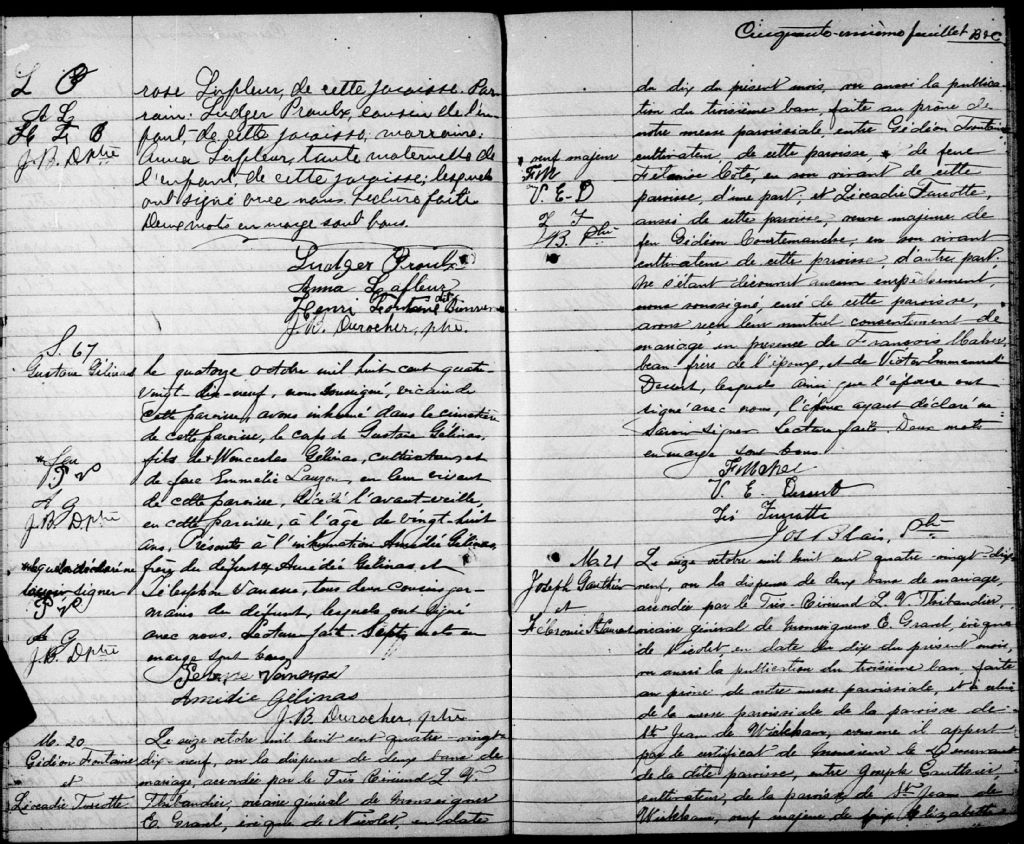 L P
A L
H F B
J.B. D ptre
rose Lafleur, de cette paroisse. Par-
rain: Ludger Proulx, cousin de l'en-
fant, de cette paroisse, marraine:
Anna Lafleur, tante maternelle de
l'enfant, de cette paroisse; lesquels
ont signé avec nous. Lecture faite
Deux mots en marge sont bons.
Ludger Proulx
Anna Lafleur
Henri Fontaine dit
J.B. Durocher, ptre.
S. 67
Gustave Gélinas
Le quatorze octobre mil huit cent quatre-
vingt-dix-neuf, nous soussigné, vicaire de
cette paroisse, avons inhumé dans le cimetière
de cette paroisse, le corps de Gustave Gélinas,
fils de + Wenceslas Gélinas, cultivateur, et
de feue Emmélie Lauzon, en leur vivant
de cette paroisse, décédé l'avant-veille,
en cette paroisse, à l'âge de vingt-huit
ans. Présents à l'inhumation Amédée Gélinas,
frère du défunt, Amédée Gélinas et
Télesphore Vanasse, tous deux cousins ger-
mains du défunt, lesquels ont signé
avec nous. Lecture faite. Sept mots en
marge sont bons.
+ feu
P V
A G
J.B. D ptre
savoir signer
P V
A G
J.B. D ptre
Vanasse
Amédée Gélinas
J.B. Durocher, ptre
M. 20
Gédéon Fontaine
et
Léocadie Turcotte
Le seize octobre mil huit cent quatre-vingt-
dix-neuf, vu la dispense de deux bans de
mariage, accordée par le Très Révérend L. V.
Thibaudier, vicaire général de Monseigneur
E. Gravel, évêque de Nicolet, en date
Cinquante-unième feuillet B&C
du dix du présent mois, vu aussi la publica-
tion du troisième ban, faite au prône de
notre messe paroissiale, entre Gédéon Fontaine
cultivateur, de cette paroisse, * de feue
Félonise Coté, en son vivant de cette
paroisse, d'une part; et Léocadie Turcotte
aussi de cette paroisse, veuve majeure de
feu Gédéon Courtemanche, en son vivant
cultivateur de cette paroisse, d'autre part.
Ne s'étant découvert aucun empêchement,
nous soussigné, curé de cette paroisse,
avons reçu leur mutuel consentement de
mariage, en présence de François Maher,
beau-frère de l'époux, et de Victor Emmanuel
Désert, lesquels ainsi que l'épouse ont
signé avec nous, l'époux ayant déclaré ne
savoir signer. Lecture faite. Deux mots
en marge sont bons.
* veuf majeur
F M
V. E. D
L T
J B. Ptre
F Maher
V. E. Désert
Turcotte
Jos Blais, Ptre
M. 21
Joseph Gauthier
et
Fébronie St Laurent
Le seize octobre mil huit cent quatre-vingt-dix-
neuf, vu la dispense de deux bans de mariage,
accordée par le Très Révérend L. V. Thibaudier,
vicaire général de Monseigneur E. Gravel, évêque
de Nicolet en date du dix du présent mois,
vu aussi la publication du troisième ban, faite
au prône de notre messe paroissiale, et à celui
de la messe paroissiale de la paroisse de
St Jean de Wickham, comme il appert
par le certificat de Monsieur le Desservant
de la dite paroisse, entre Joseph Gauthier,
cultivateur, de la paroisse de St Jean de
Wickham, veuf majeur de feue Elizabeth